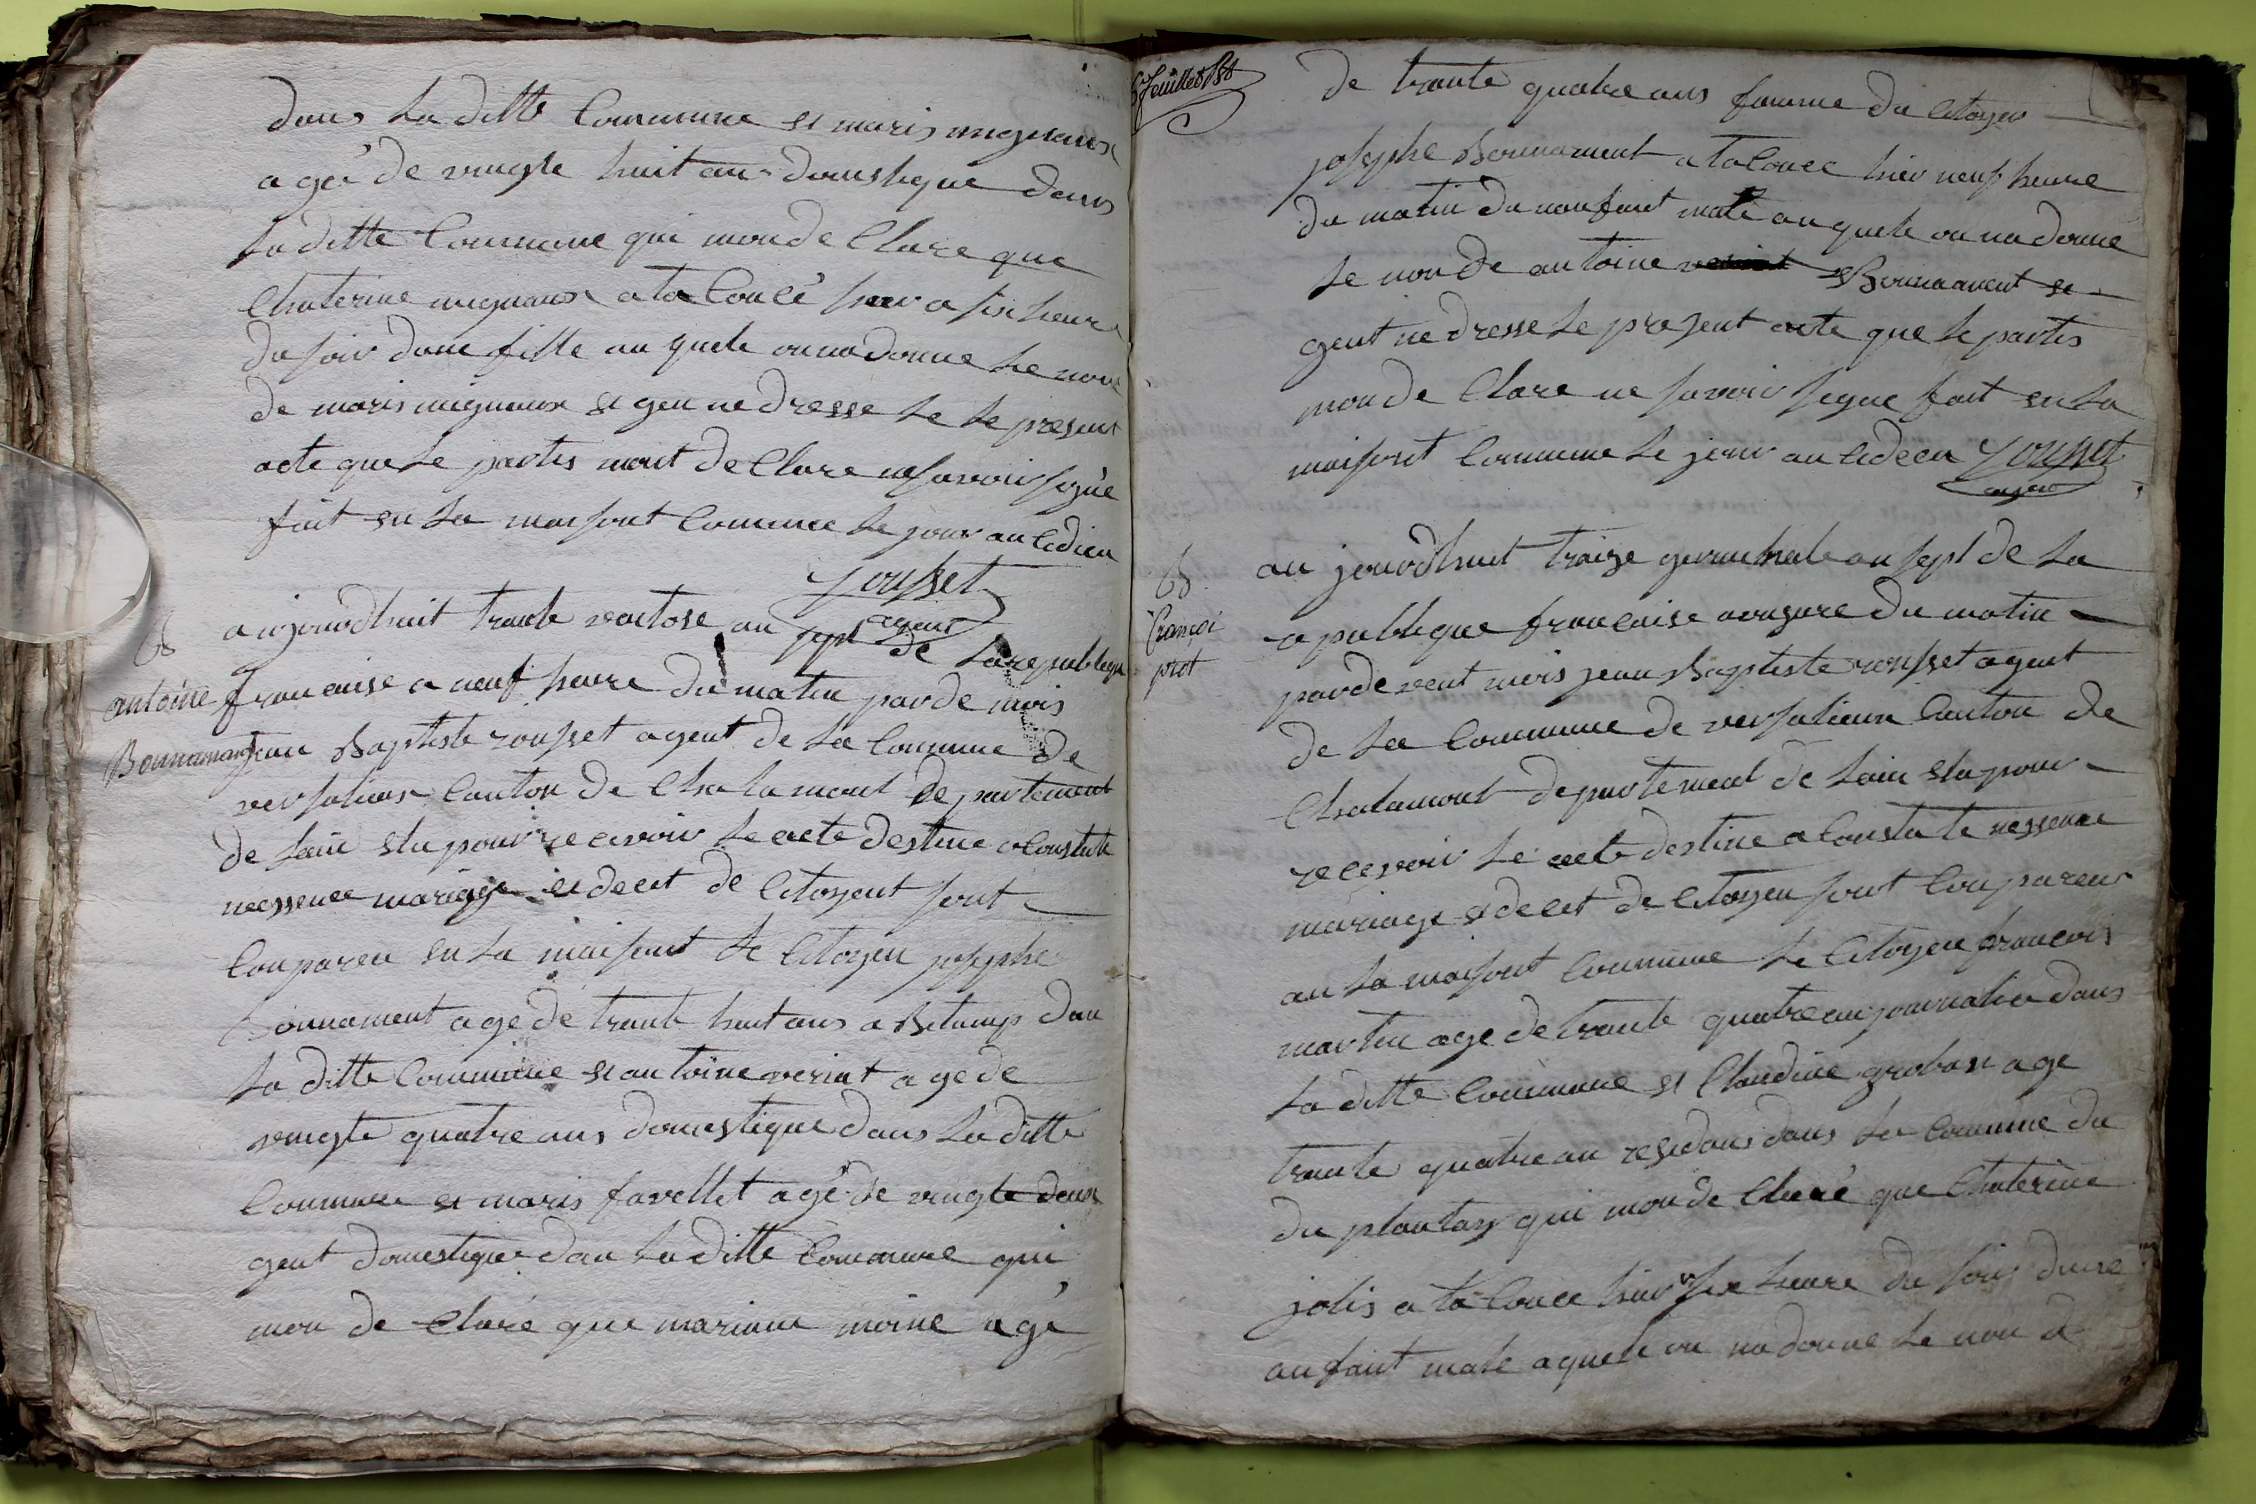 dans La ditte Commune et maris mignaux
agé de vingte huit an domestique dans
La ditte Commune qui monde Clare que
Chaterine mignaux ata Couce hier a six heure
du soir dune fille au quele on na donne Le nom
de maris mignaux et gen ne dresse Le Le present
acte que Le partis mont de Clare ne savoir signe
fait en La maisont Commune Le jour an Cedieu
rousset
agent
B
antoine
Bonnamant
aujourdhuit trante vantose an sept de La republique
francaise a neuf heure du matin par de mois
jean Baptiste rousset agent de La Commune de
versalieux Canton de Chalamont departement
de Lain elu pour recevoir Le acte destine a Constate
nessence mariage et decet de Citoyent sont
Conpareu en La maisont Le Citoyen josephe
Bonnament age de trante huit ans a Betamp dan
La ditte Commune et antoine verint age de
vingte quatre ans domestique dans La ditte
Commune et maris favellet agé de vingte deux
gent domestique dan La ditte Commune qui
mon de Claré que mariane moine agé
6 feuillet
de trante quatre ans famme du Citoyen
josephe Bonnament ata Couce hier neuf heure
du matin du nanfant male au quele on na donne
Le non de antoine Bonnavent et
gent ne dresse Le present acte que Le partis
mon de Clare ne savoir signe fait en La
maisont Commune Le jour an Cedeu rousset
agent
B
francoi
prot
au jourdhuit traize germinale an sept de La
republique francaise a onzure du matin
pardevent mois jean Baptiste rousset agent
de La Commune de versalieux Canton de
Chalamont departement de Lain elu pour
recevoir Le acte destine a Constate nessence
mariage et decet de Citoyen sont Conpareu
an La maisont Commune Le Citoyen francois
martin age de trante quatre an journalier dans
La ditte Commune et Claudine grobas age
trante quatre an residans dans La Commune du
du plantay qui mon de Claré que Chaterine
jolis a ta Couce hier six heure du soir dune
anfant male a quele on na donne Le non d